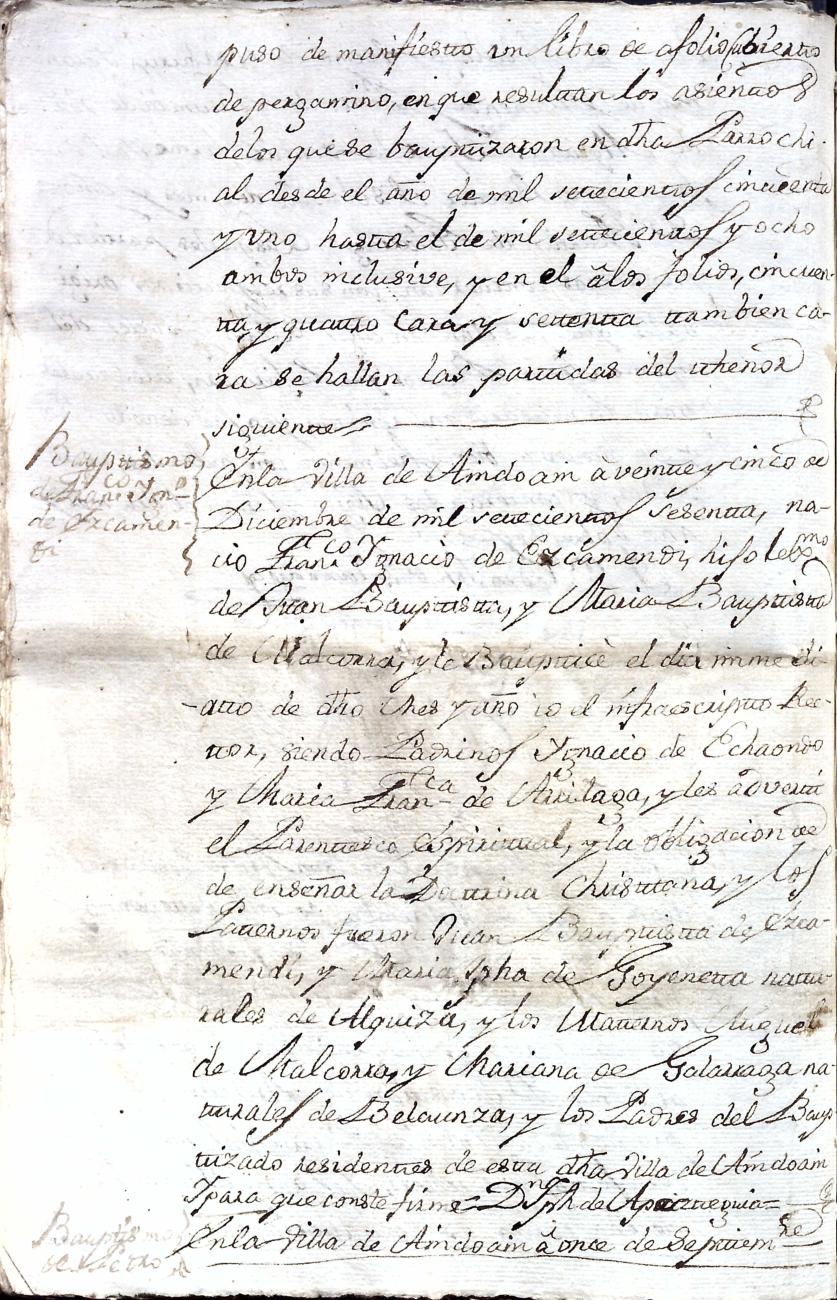 puso de manifiesto un libro de afolio cubierto
de pergamino, en que resultan los asientos
delos que se bauptizaron en dha Parrochi-
al desde el año de mil setecientos cincuenta
y uno hasta el de mil setecientos y ocho
ambos inclusive, y en el â los folios, cincuen-
ta y quatro cara y setenta tambien ca-
ra se hallan las partidas del thenor
siguiente
Bauptismo
de Franco Ygno
de Ezcamen-
di
Enla Villa de Amdoain à veinte y cinco de
Diciembre de mil setecientos sesenta, na-
cio Franco Ygnacio de Ezcamendi, hijo lexmo
de Juan Bauptista, y Maria Bauptista
de Malcorra, y le Baupticè el dia immedi-
atto de dho Mes y año io el infraescripto Rec-
tor, siendo Padrinos Ygnacio de Echaondo
y Maria Franca de Arrilaga, y les adverti
el Parentesco Espiritual, y la obligacion
de enseñar la Doctrina Christiana, y los
Paternos fueron Juan Bauptista de Ezca-
mendi, y Maria Jpha de Goyeneta natu-
rales de Alquiza, y los Maternos Miguel
de Malcorra, y Mariana de Galarraga na-
turales de Belaunza, y los Padres del Baup
tizado residentes de esta dha Villa de Amdoain
Ypara que conste firmè = Dn Jph de
Enla Villa de Amdoain à once de Septiemre
Bauptismo
de Pedro